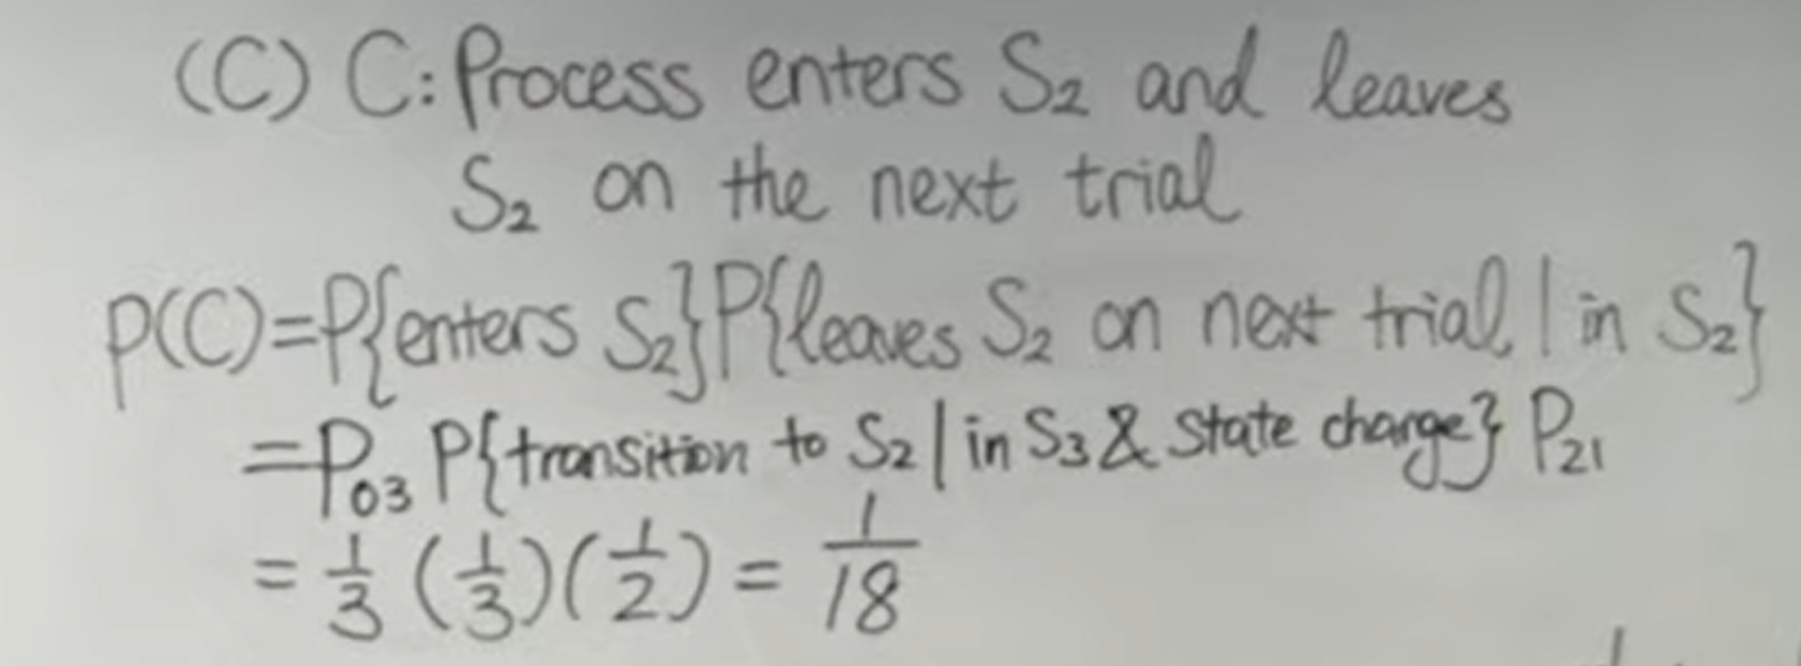 (C) C: Process enters S₂ and leaves
S₂ on the next trial
P(C)=P{enters S₂}P{leaves S₂ on next trial | in S₂}
=P₀₃ P{transition to S₂ | in S₃ & state charge} P₂₁
= 1/3 (1/3)(1/2) = 1/18